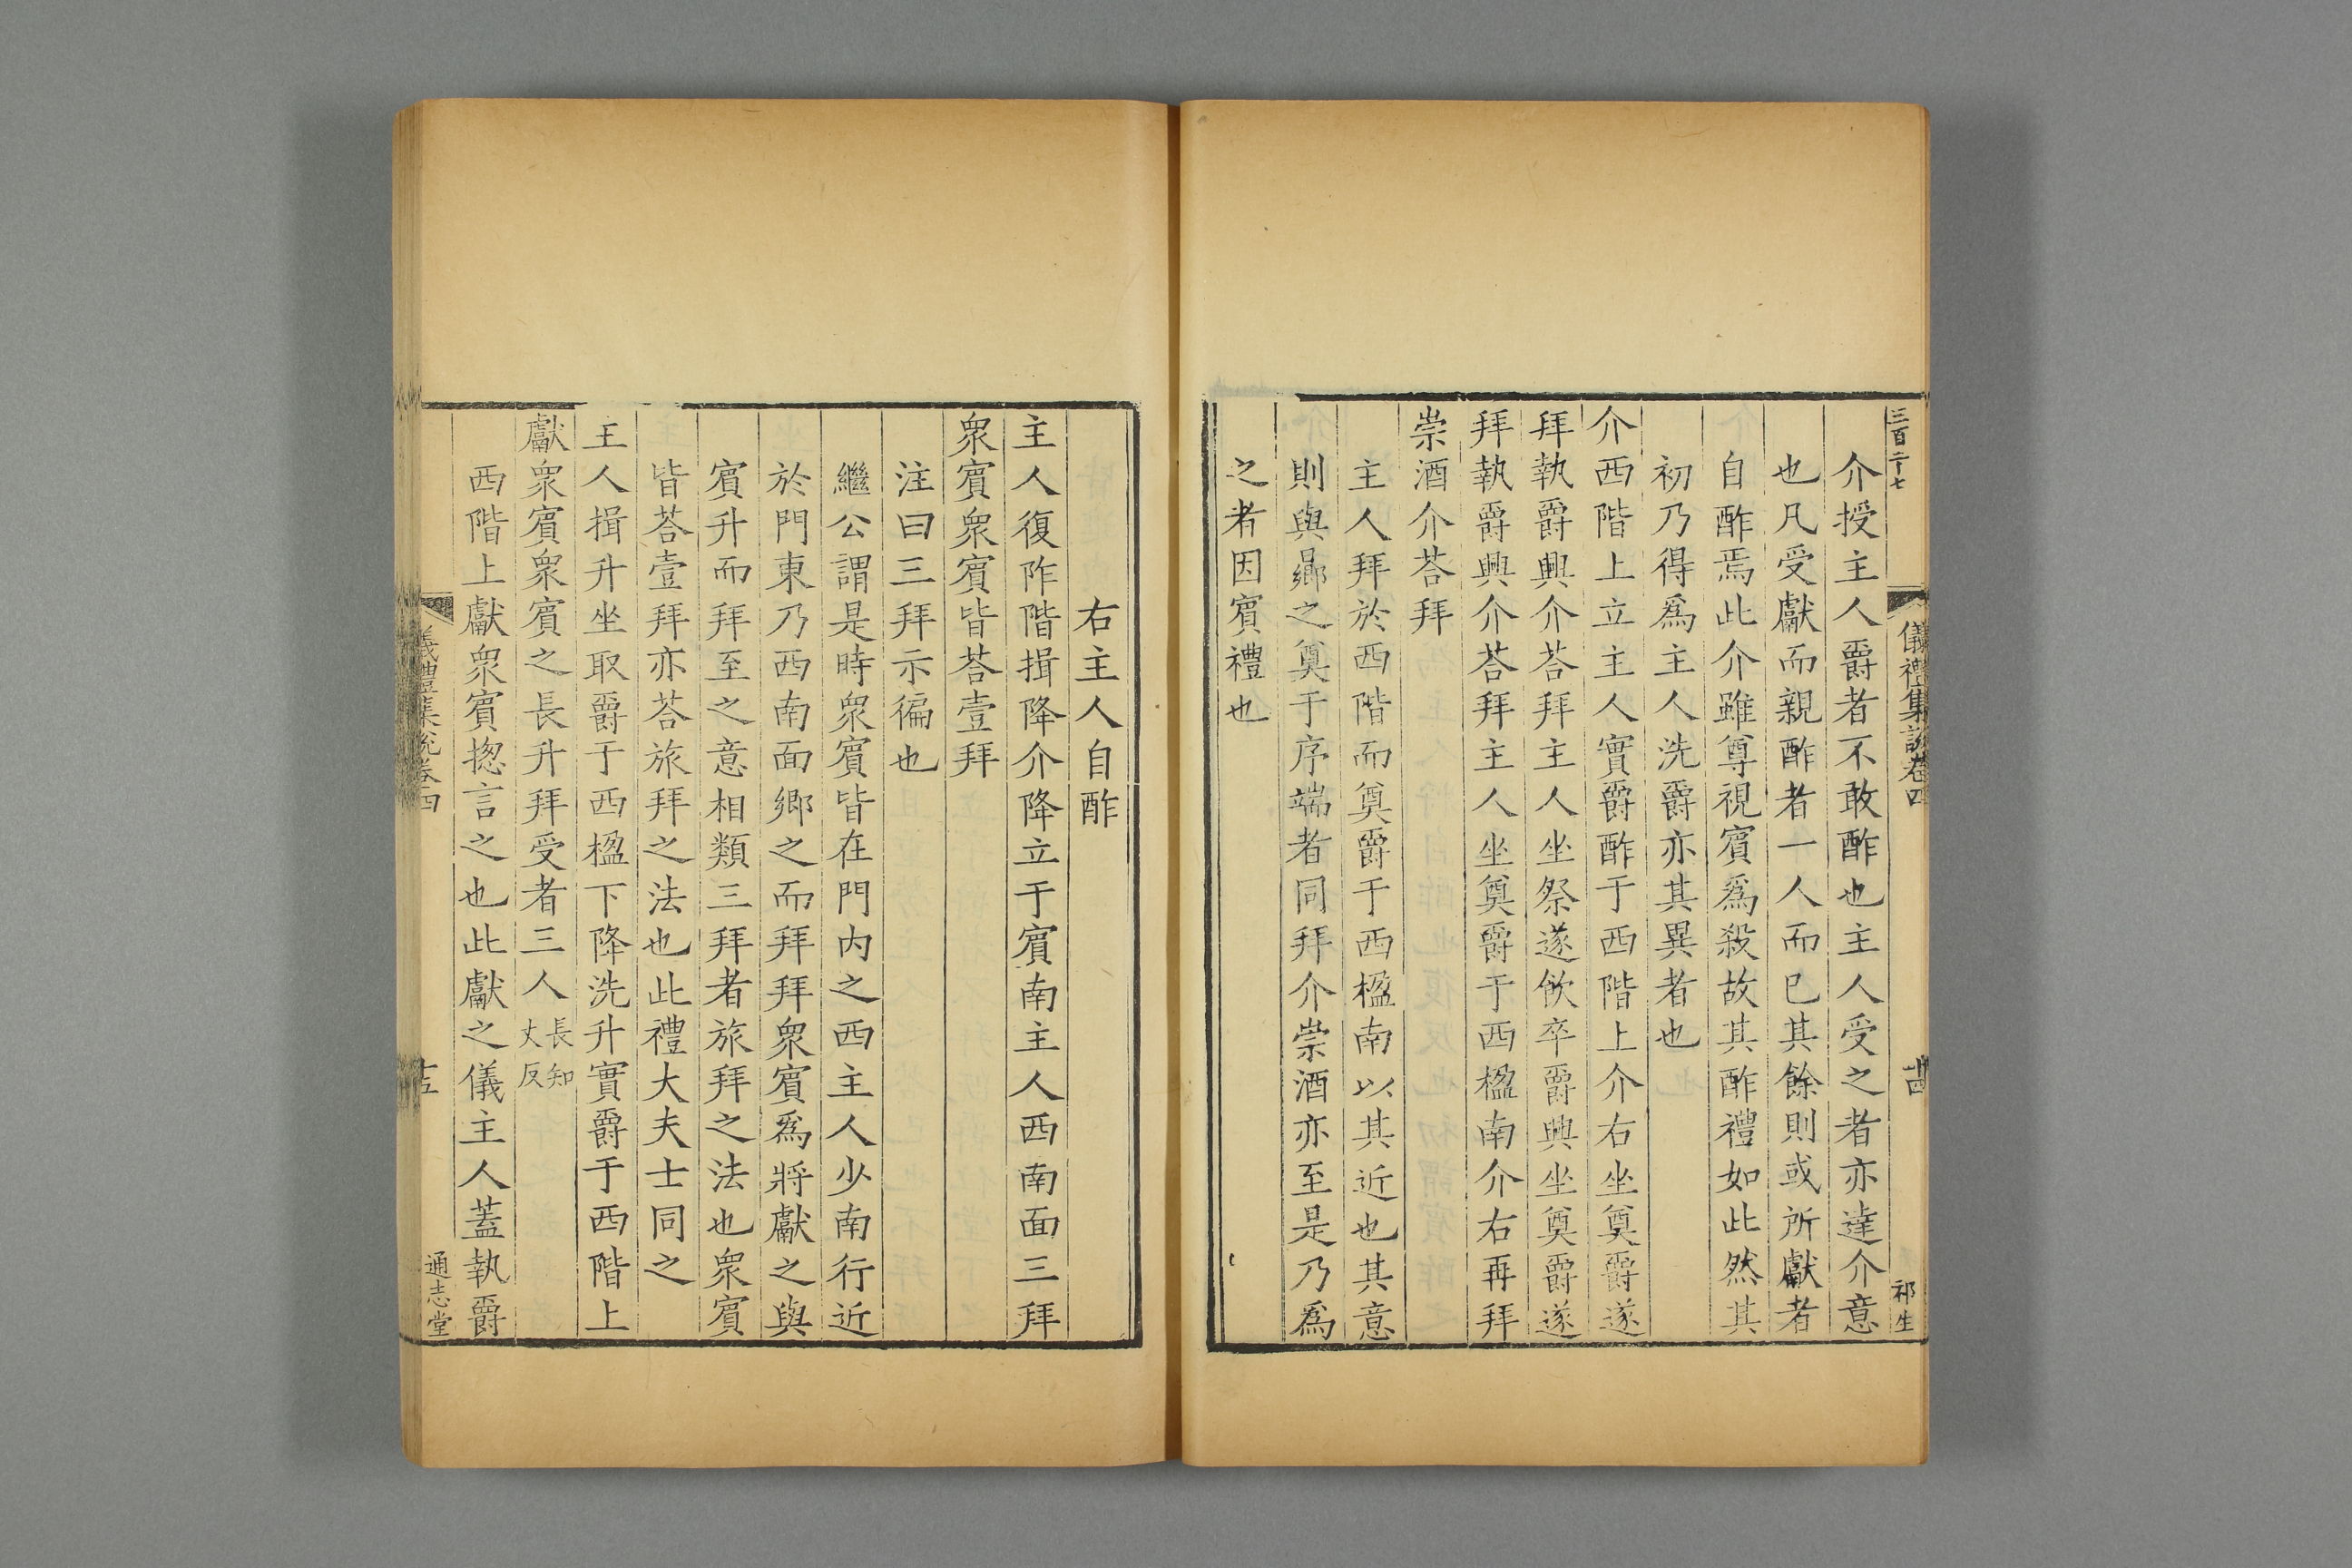 三百二十七
儀禮集說卷四
十四
祁生
介授主人爵者不敢酢也主人受之者亦達介意
也凡受獻而親酢者一人而已其餘則或所獻者
自酢焉此介雖尊視賓爲殺故其酢禮如此然其
初乃得爲主人洗爵亦其異者也
介西階上立主人實爵酢于西階上介右坐奠爵遂
拜執爵興介荅拜主人坐祭遂飮卒爵興坐奠爵遂
拜執爵興介荅拜主人坐奠爵于西楹南介右再拜
崇酒介荅拜
主人拜於西階而奠爵于西楹南以其近也其意
則與曏之奠于序端者同拜介崇酒亦至是乃爲
之者因賓禮也
右主人自酢
主人復阼階揖降介降立于賓南主人西南面三拜
衆賓衆賓皆荅壹拜
注曰三拜示徧也
繼公謂是時衆賓皆在門內之西主人少南行近
於門東乃西南面鄉之而拜拜衆賓爲將獻之與
賓升而拜至之意相類三拜者旅拜之法也衆賓
皆荅壹拜亦荅旅拜之法也此禮大夫士同之
主人揖升坐取爵于西楹下降洗升實爵于西階上
獻衆賓衆賓之長升拜受者三人長知丈反
西階上獻衆賓揔言之也此獻之儀主人蓋執爵
儀禮集說卷四
十五
通志堂